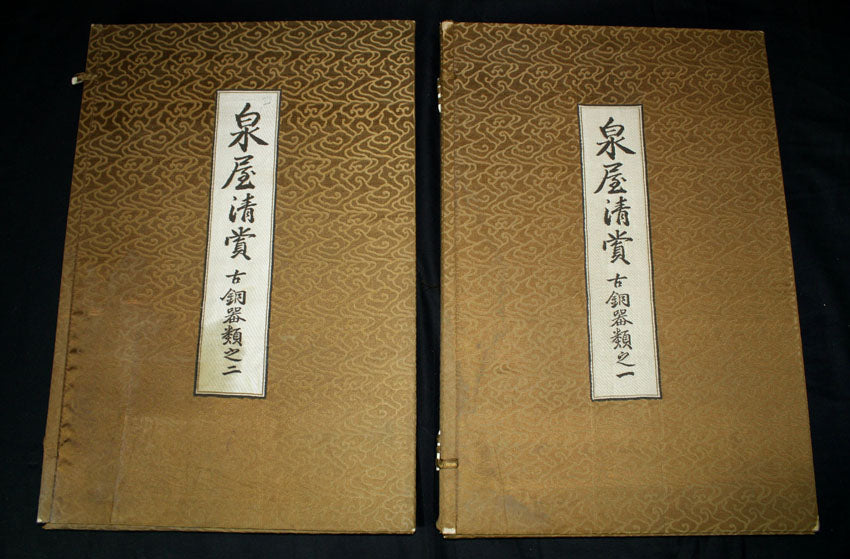 泉屋清賞 古銅器類之一
泉屋清賞 古銅器類之二